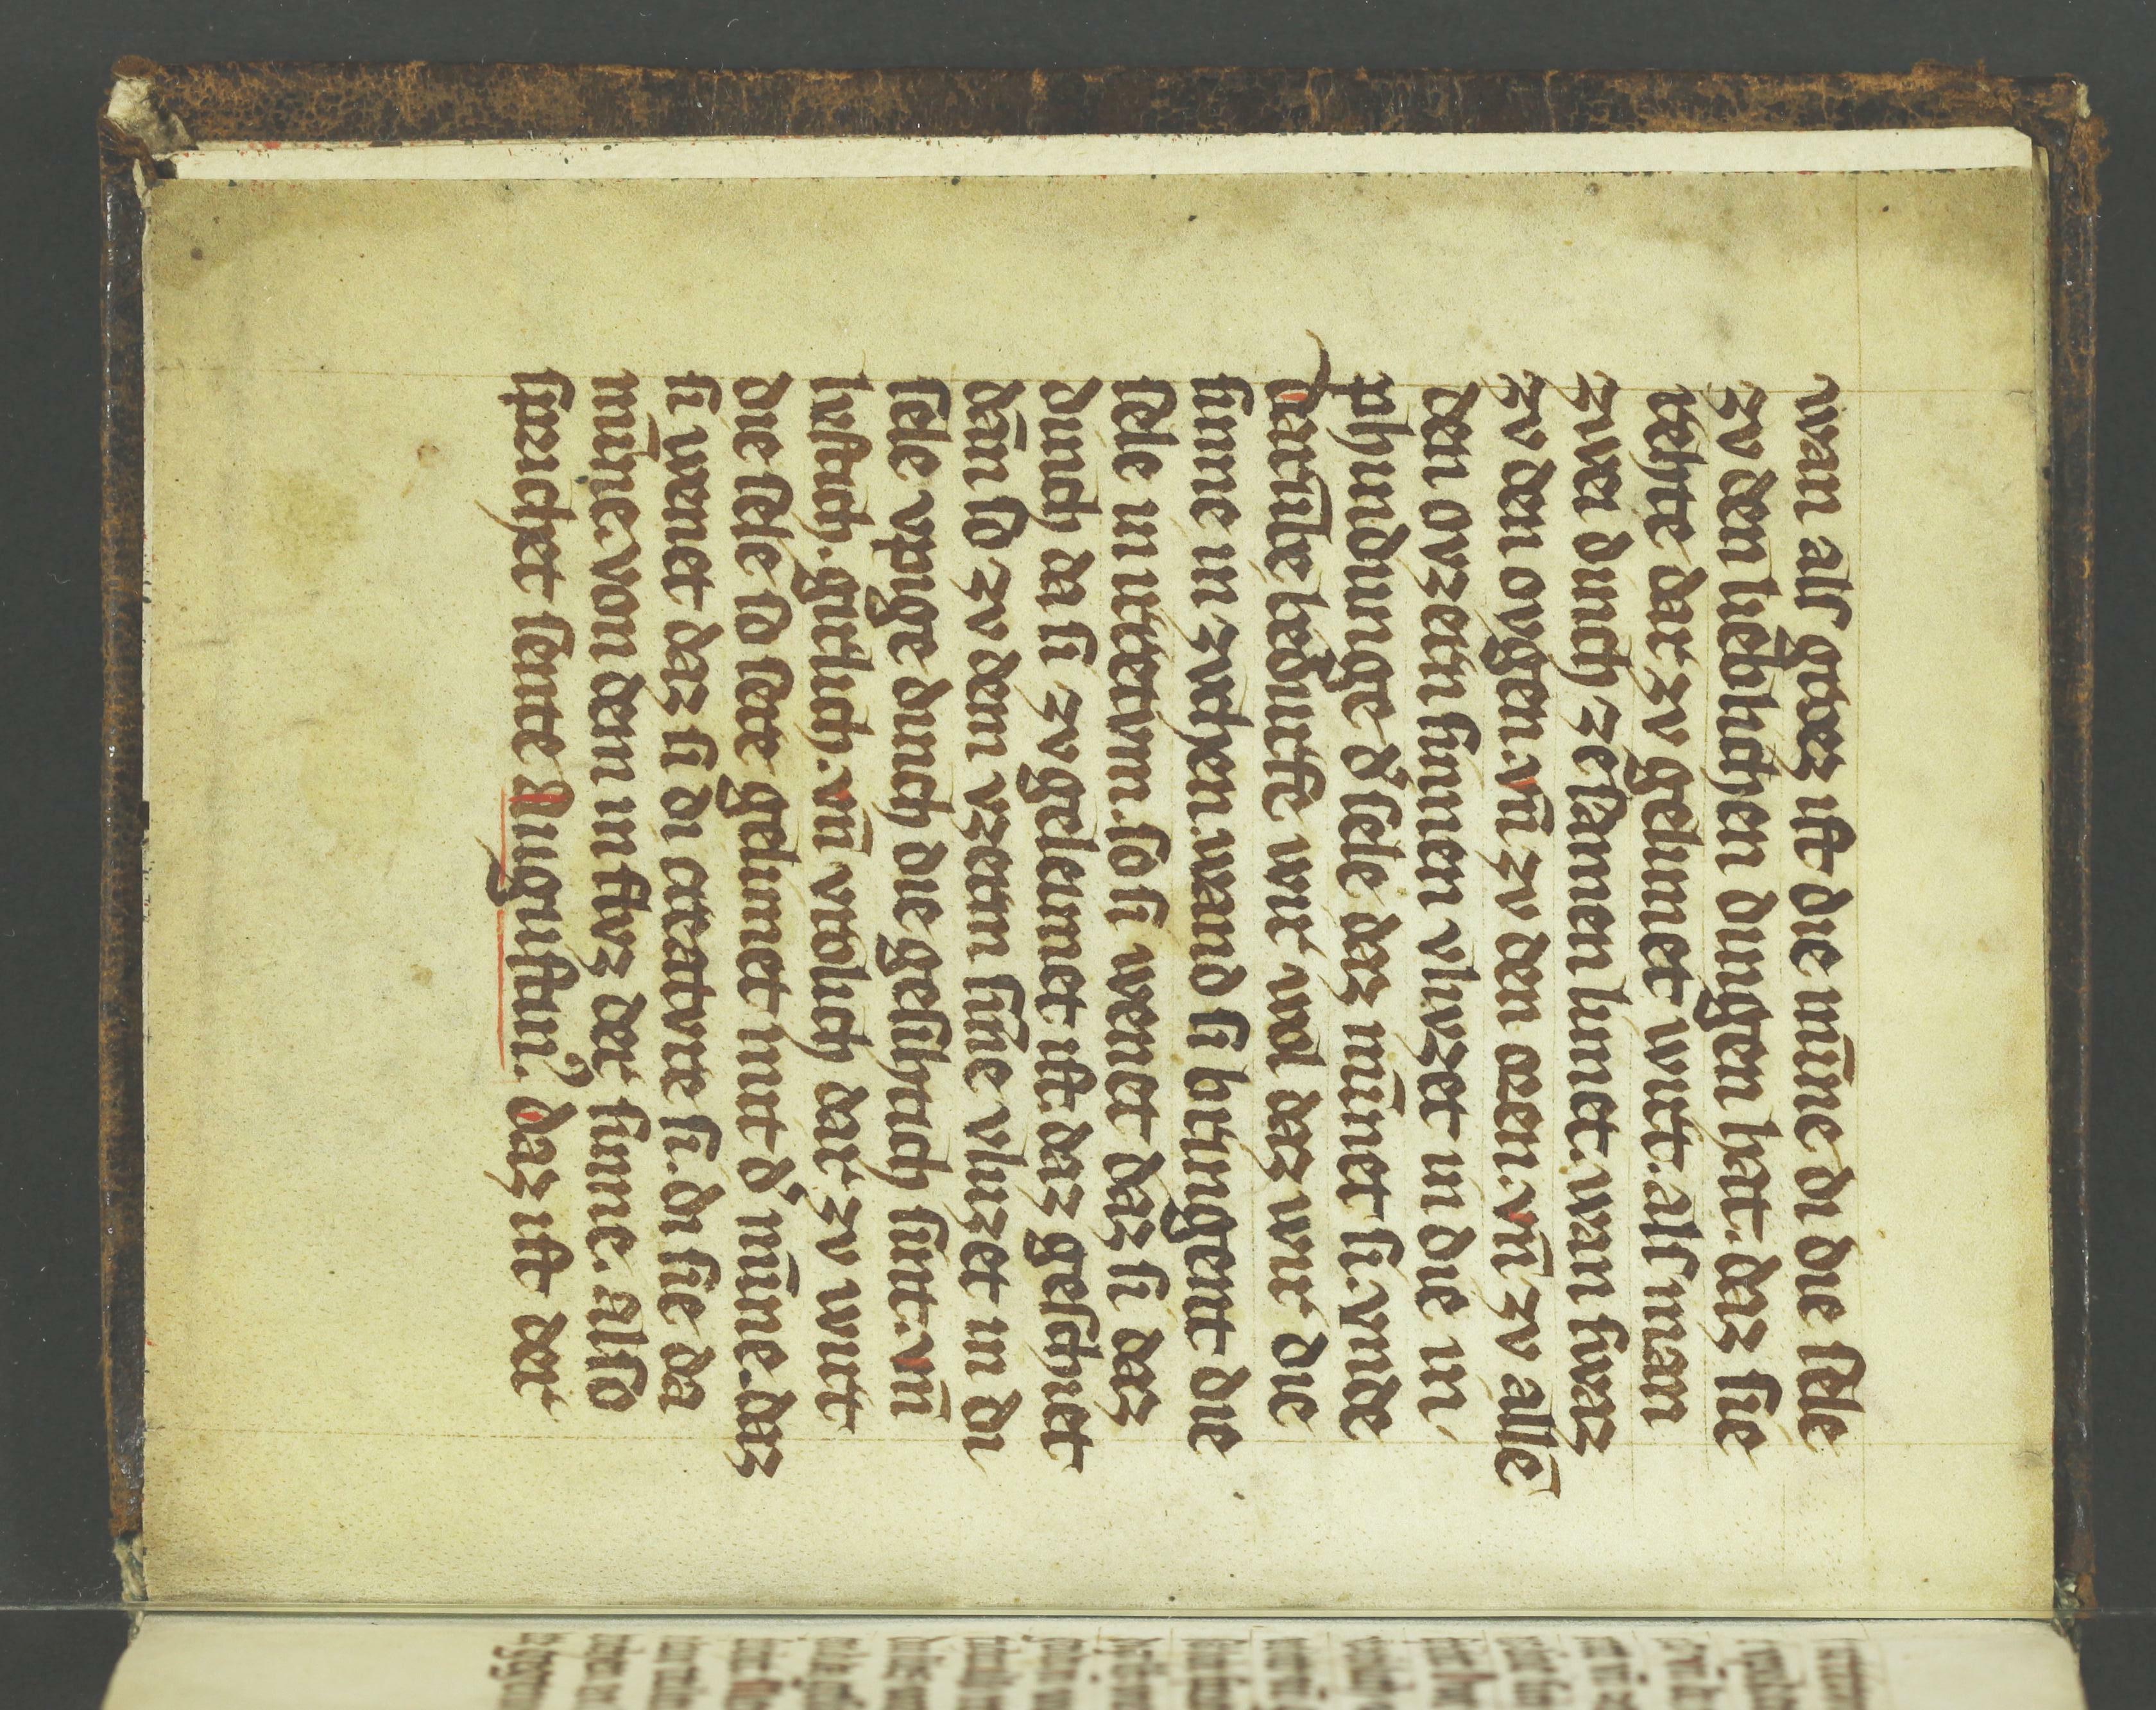 wan alſ grͦez iſt die mīne di die ſele
zv den liͤblichen dingen hat. daz ſie
rehte dar zv gelimet wirt. alſ man
zwei dinch zeſamen limet. wan ſwaz
zv den ovgen. vn̄ zv den oren. vn̄ zv allē
den ovzern ſinnen vlivzet in die in
phindunge d̓ ſele daz minnet ſi. vnde
da mīke bedurfte wir wol daz wir die
ſinne in zvͤhen. wand ſi bringent die
ſele in irretvm. ſo ſi wenet daz ſi daz
dinch da ſi zv geleimet iſt. daz geſchiet
dāīn ſo zv dem vzern ſīne vlizet in di
ſele vppige dinch die geſihtich ſint. vn̄
lvſtich. gūtlich. vn̄ vrolich dar zv wirt
die ſele ſo ſere gelimet mit d̓ mīne. daz
ſi wenet daz ſi di creatvre ſi. di ſie da
mīne. von dem inflvz der ſinne. Alſo
ſprichet ſente Auguſtin̓. daz iſt der